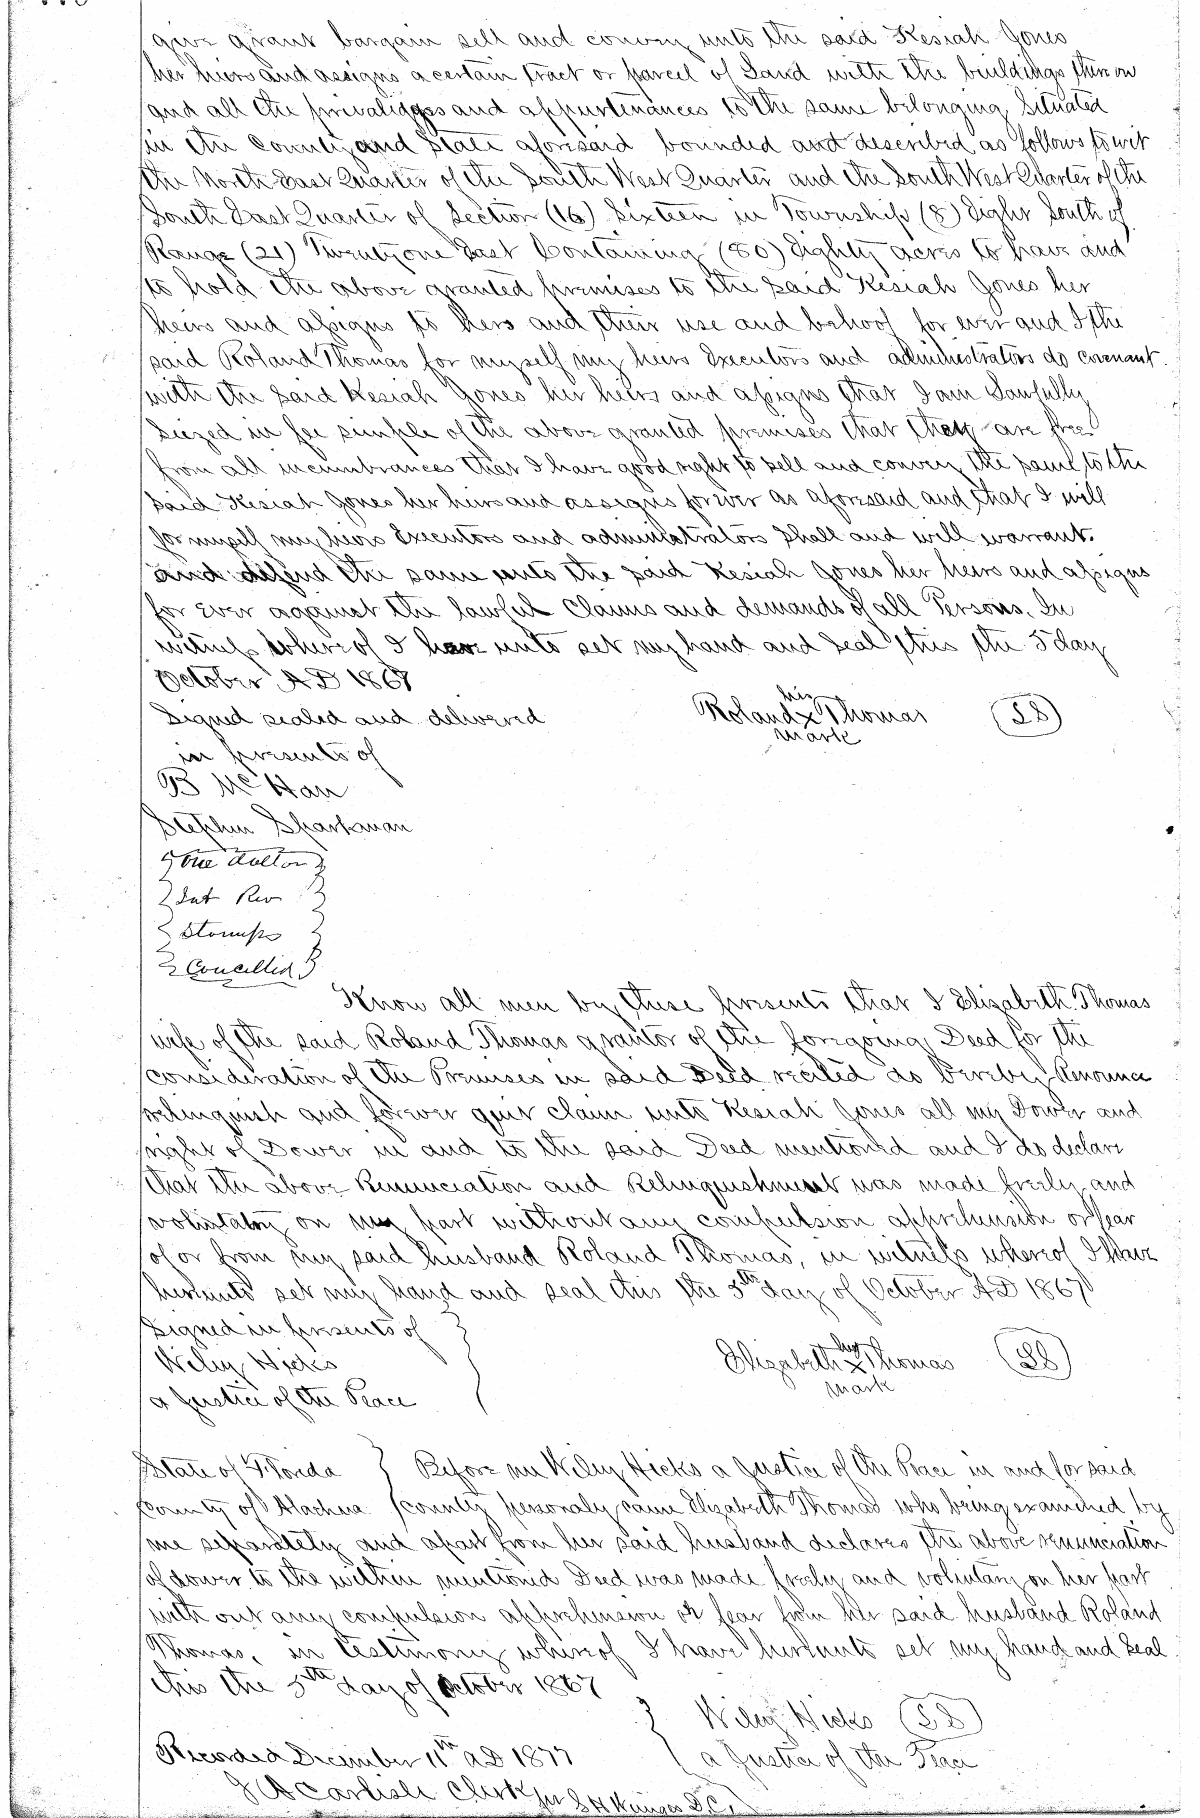 give grant bargain sell and convey unto the said Kesiah Jones
her heirs and assigns a certain tract or parcel of Land with the buildings thereon
and all the privalidges and appurtenances to the same belonging Situated
in the County and State aforesaid bounded and described as follows to wit
the North East Quarter of the South West Quarter and the South West Quarter of the
South East Quarter of Section (16) Sixteen in Township (8) Eight South of
Range (21) Twenty one East Containing (80) Eighty acres to have and
to hold the above granted premises to the said Kesiah Jones her
heirs and assigns to hers and their use and behoof for ever and I the
said Roland Thomas for myself my heirs Executors and administrators do covenant
with the said Kesiah Jones her heirs and assigns that I am Lawfully
Siezed in fee simple of the above granted premises that they are free
from all incumbrances that I have good right to sell and convey the same to the
said Kesiah Jones her heirs and assigns forever as aforesaid and that I will
for myself my heirs Executors and administrators Shall and will warrant.
and defend the same unto the said Kesiah Jones her heirs and assigns
for ever against the lawful Claims and demands of all Persons. In
witness Where of I have unto set my hand and Seal this the 5 day
October AD 1867
Signed sealed and delivered
in presents of
his
Roland x Thomas (LS)
mark
B McHan
Stephen Sparkman
One dollar
Int Rev
Stamps
Concellid
Know all men by these presents that I Elizabeth Thomas
wife of the said Roland Thomas grantor of the foregoing Deed for the
consideration of the Premises in said Deed recited do hereby Renounce
relinquish and forever quit claim unto Kesiah Jones all my Dower and
right of Dower in and to the said Deed mentioned and I do declare
that the above Renunciation and Relinquishment was made freely and
volintatry on my part without any compulsion apprehension or fear
of or from my said husband Roland Thomas, in witness whereof I have
hereunto set my hand and seal this the 5th day of October AD 1867
Signed in presents of
Wiley Hicks
a Justice of the Peace
her
Elizabeth x Thomas (LS)
mark
State of Florida } Before me Wiley Hicks a Justice of the Peace in and for said
County of Alachua county personaly came Elizabeth Thomas who being examined by
me separately and apart from her said husband declares the above renunciation
of dower to the within mentioned Deed was made freely and voluntary on her part
with out any compulsion apprehension or fear from her said husband Roland
Thomas, in testimony whereof I have hereunto set my hand and Seal
this the 5th day of October 1867
Wiley Hicks (LS)
a Justice of the Peace
Recorded December 11th AD 1877
J A Carlisle Clerk